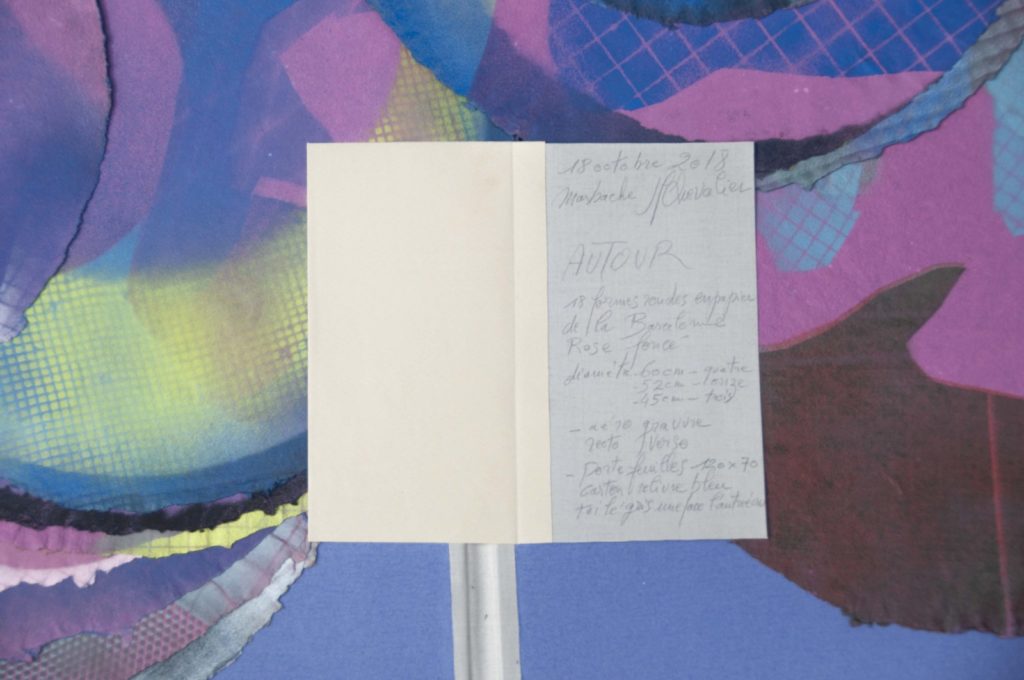 18 octobre 2018
Marbache JJ Chevalier
AUTOUR
18 formes rondes en papier
de la Barcelonne
Rose foncé
diamètre - 60cm - quatre
- 52cm - onze
- 45cm - trois
- aéro gravure
recto verso
- porte feuilles 120 x 70
carton relivre bleu
toile gris une face